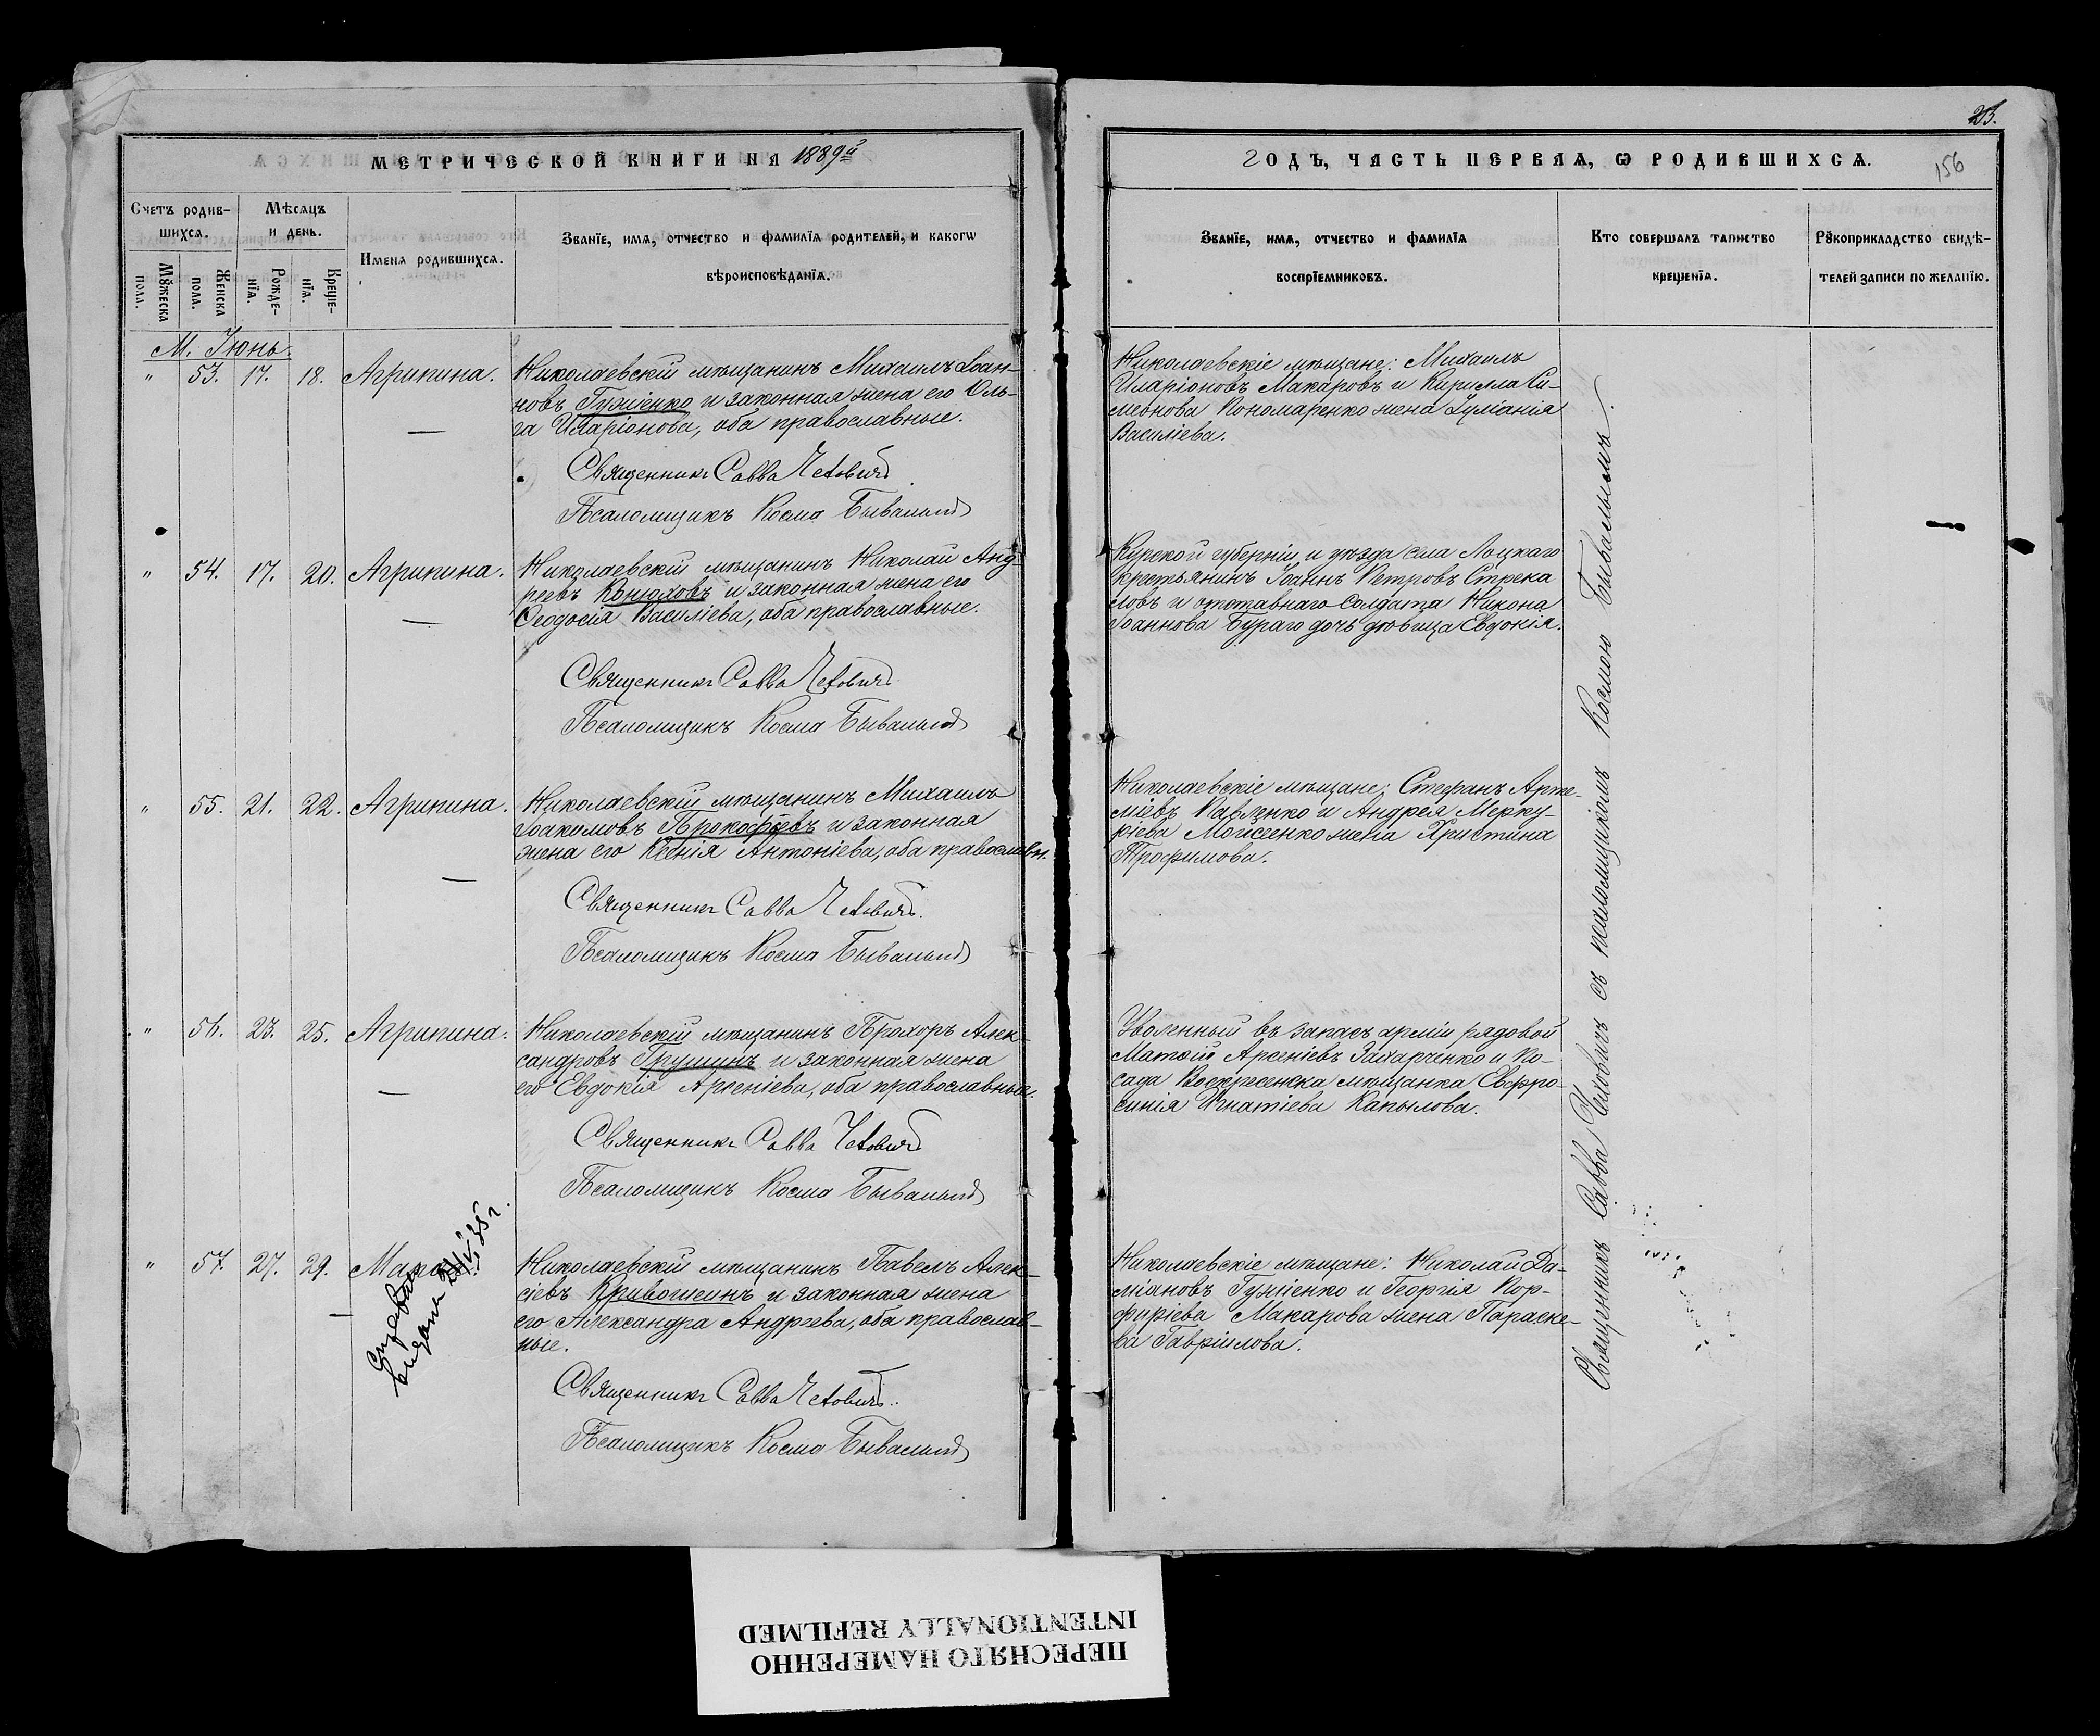 23.
156
МЕТРИЧЕСКОЙ КНИГИ НА 1889й
ГОДЪ, ЧАСТЬ ПЕРВАЯ, Ѡ РОДИВШИХСѦ.
Счетъ родив-
шихсѧ.
Мѣсѧцъ
и день.
Имена родившихсѧ.
Званїе, имѧ, отчество и фамилїѧ родителей, и какогѡ
вѣроисповѣданїѧ.
Мꙋжеска
пола.
Женска
пола.
Рожде-
нїѧ.
Креще-
нїѧ.
Званїе, имѧ, отчество и фамилїѧ
воспрїемниковъ.
Кто совершалъ таинство
крещенїѧ.
Рꙋкоприкладство свидѣ-
телей записи по желанїю.
М. Іюнь.
" 53. 17. 18. Агрипина.
Николаевскій мѣщанинъ Михаилъ Іоан-
новъ Гужіенко и законная жена его Оль-
га Иларіонова, оба православные.
Священникъ Савва Чехович
Псаломщикъ Косма Бывалый
Николаевскіе мѣщане: Михаилъ
Иларіоновъ Макаровъ и Кирилла Си-
меонова Пономаренко жена Іуліанія
Василіева.
" 54. 17. 20. Агрипина.
Николаевскій мѣщанинъ Николай Анд-
реевъ Конюховъ и законная жена его
Ѳеодосія Василіева, оба православные.
Священникъ Савва Чехович
Псаломщикъ Косма Бывалый
Курской губерніи и уѣзда села Лоцкаго
крестьянинъ Іоаннъ Петровъ Стрека
ловъ и отставнаго солдата Никона
Іоаннова Бураго дочь дѣвица Евдокія.
" 55. 21. 22. Агрипина.
Николаевскій мѣщанинъ Михаилъ
Іоакимовъ Прокофіевъ и законная
жена его Ксенія Антоніева, оба православн.
Священникъ Савва Чехович
Псаломщикъ Косма Бывалый
Николаевскіе мѣщане: Стефанъ Арте-
міевъ Павленко и Андрея Мерку-
ріева Моисеенко жена Христина
Трофимова.
" 56. 23. 25. Агрипина.
Николаевскій мѣщанинъ Прохоръ Алек-
сандровъ Грушинъ и законная жена
его Евдокія Арсеніева, оба православные.
Священникъ Савва Чехович
Псаломщикъ Косма Бывалый
Уволенный въ запасъ арміи рядовой
Матѳій Арсеніевъ Захарченко и по-
сада Воскресенска мѣщанка Евфро-
синія Игнатіева Капылова.
" 57. 27. 29.
Николаевскій мѣщанинъ Павелъ Алек-
сіевъ Кривошеинъ и законная жена
его Александра Андреева, оба православ-
ные.
Священникъ Савва Чехович
Псаломщикъ Косма Бывалый
Николаевскіе мѣщане: Николай Да-
міановъ Гужіенко и Георгія Пор-
фиріева Макарова жена Параске-
ва Гавріилова.
Справка
выдана 35 г.
Священникъ Савва Чеховичъ съ псаломщикомъ Космою Бывалымъ.
ПЕРЕСНЯТО НАМЕРЕННО
INTENTIONALLY REFILMED